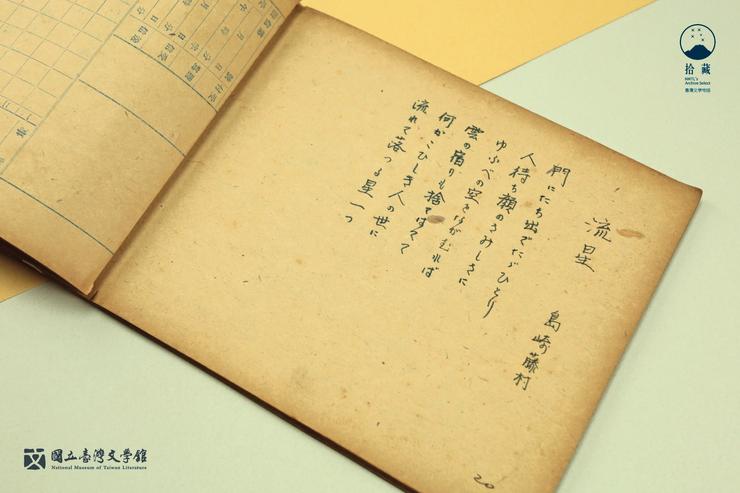 流星
島崎藤村
門にたち出でたゞひとり
人待ち顔のさみしさに
ゆふべの空をながむれば
雲の宿りも捨てはてて
何かこひしき人の世に
流れて落つる星一つ
20
拾藏
NMTL's
Archive Select
臺灣文學物語
國立臺灣文學館
National Museum of Taiwan Literature